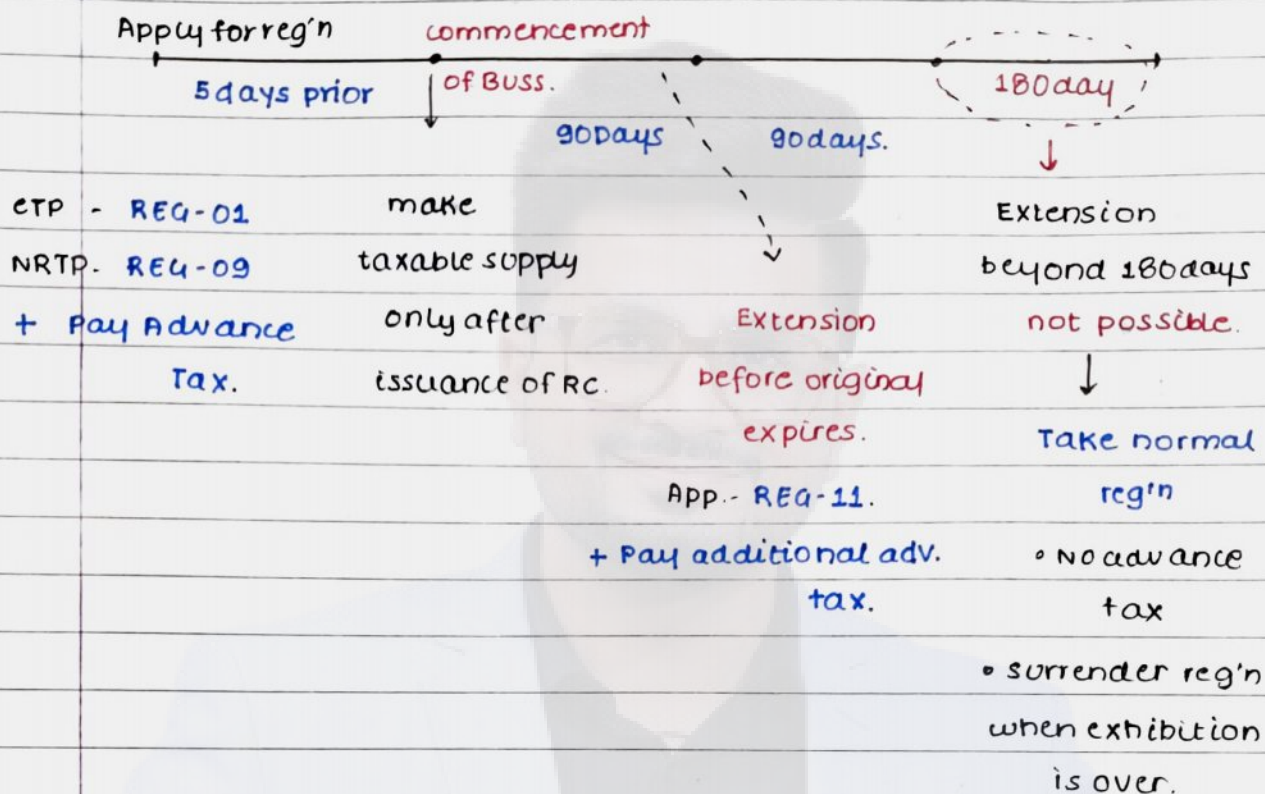 Apply for reg'n
commencement
of Buss.
5 days prior
180 day
90 Days
90 days.
CTP - REG-01
NRTP - REG-09
+ Pay Advance
Tax.
make
taxable supply
only after
issuance of RC.
Extension
before original
expires.
App.- REG-11.
+ Pay additional adv.
tax.
Extension
beyond 180 days
not possible.
Take normal
reg'n
• No advance
tax
• surrender reg'n
when exhibition
is over.